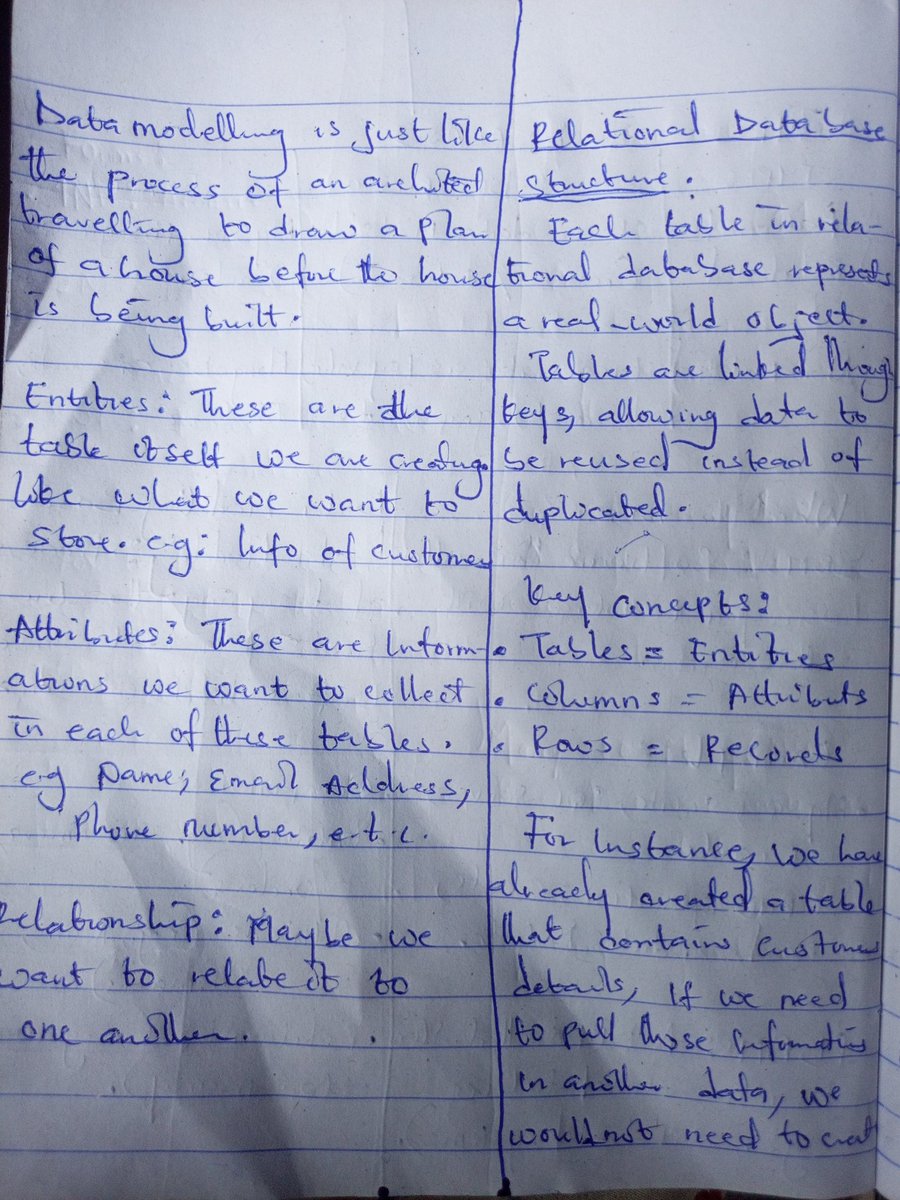 Data modelling is just like
the process of an architect
travelling to draw a plan
of a house before the house
is being built.
Entities: These are the
table itself we are creating
like what we want to
store. e.g: Info of customer
Attributes: These are Inform-
ations we want to collect
in each of these tables.
e.g Name, Email Address,
Phone number, e.t.c.
Relationship: Maybe we
want to relate it to
one another.
Relational Database
Structure.
Each table in rela-
tional database represents
a real-world object.
Tables are linked through
keys, allowing data to
be reused instead of
duplicated.
Key Concepts:
• Tables = Entities
• Columns = Attributs
• Rows = Records
For Instance, we have
already created a table
that contains customer
details, If we need
to pull those Informations
in another data, we
would not need to creat